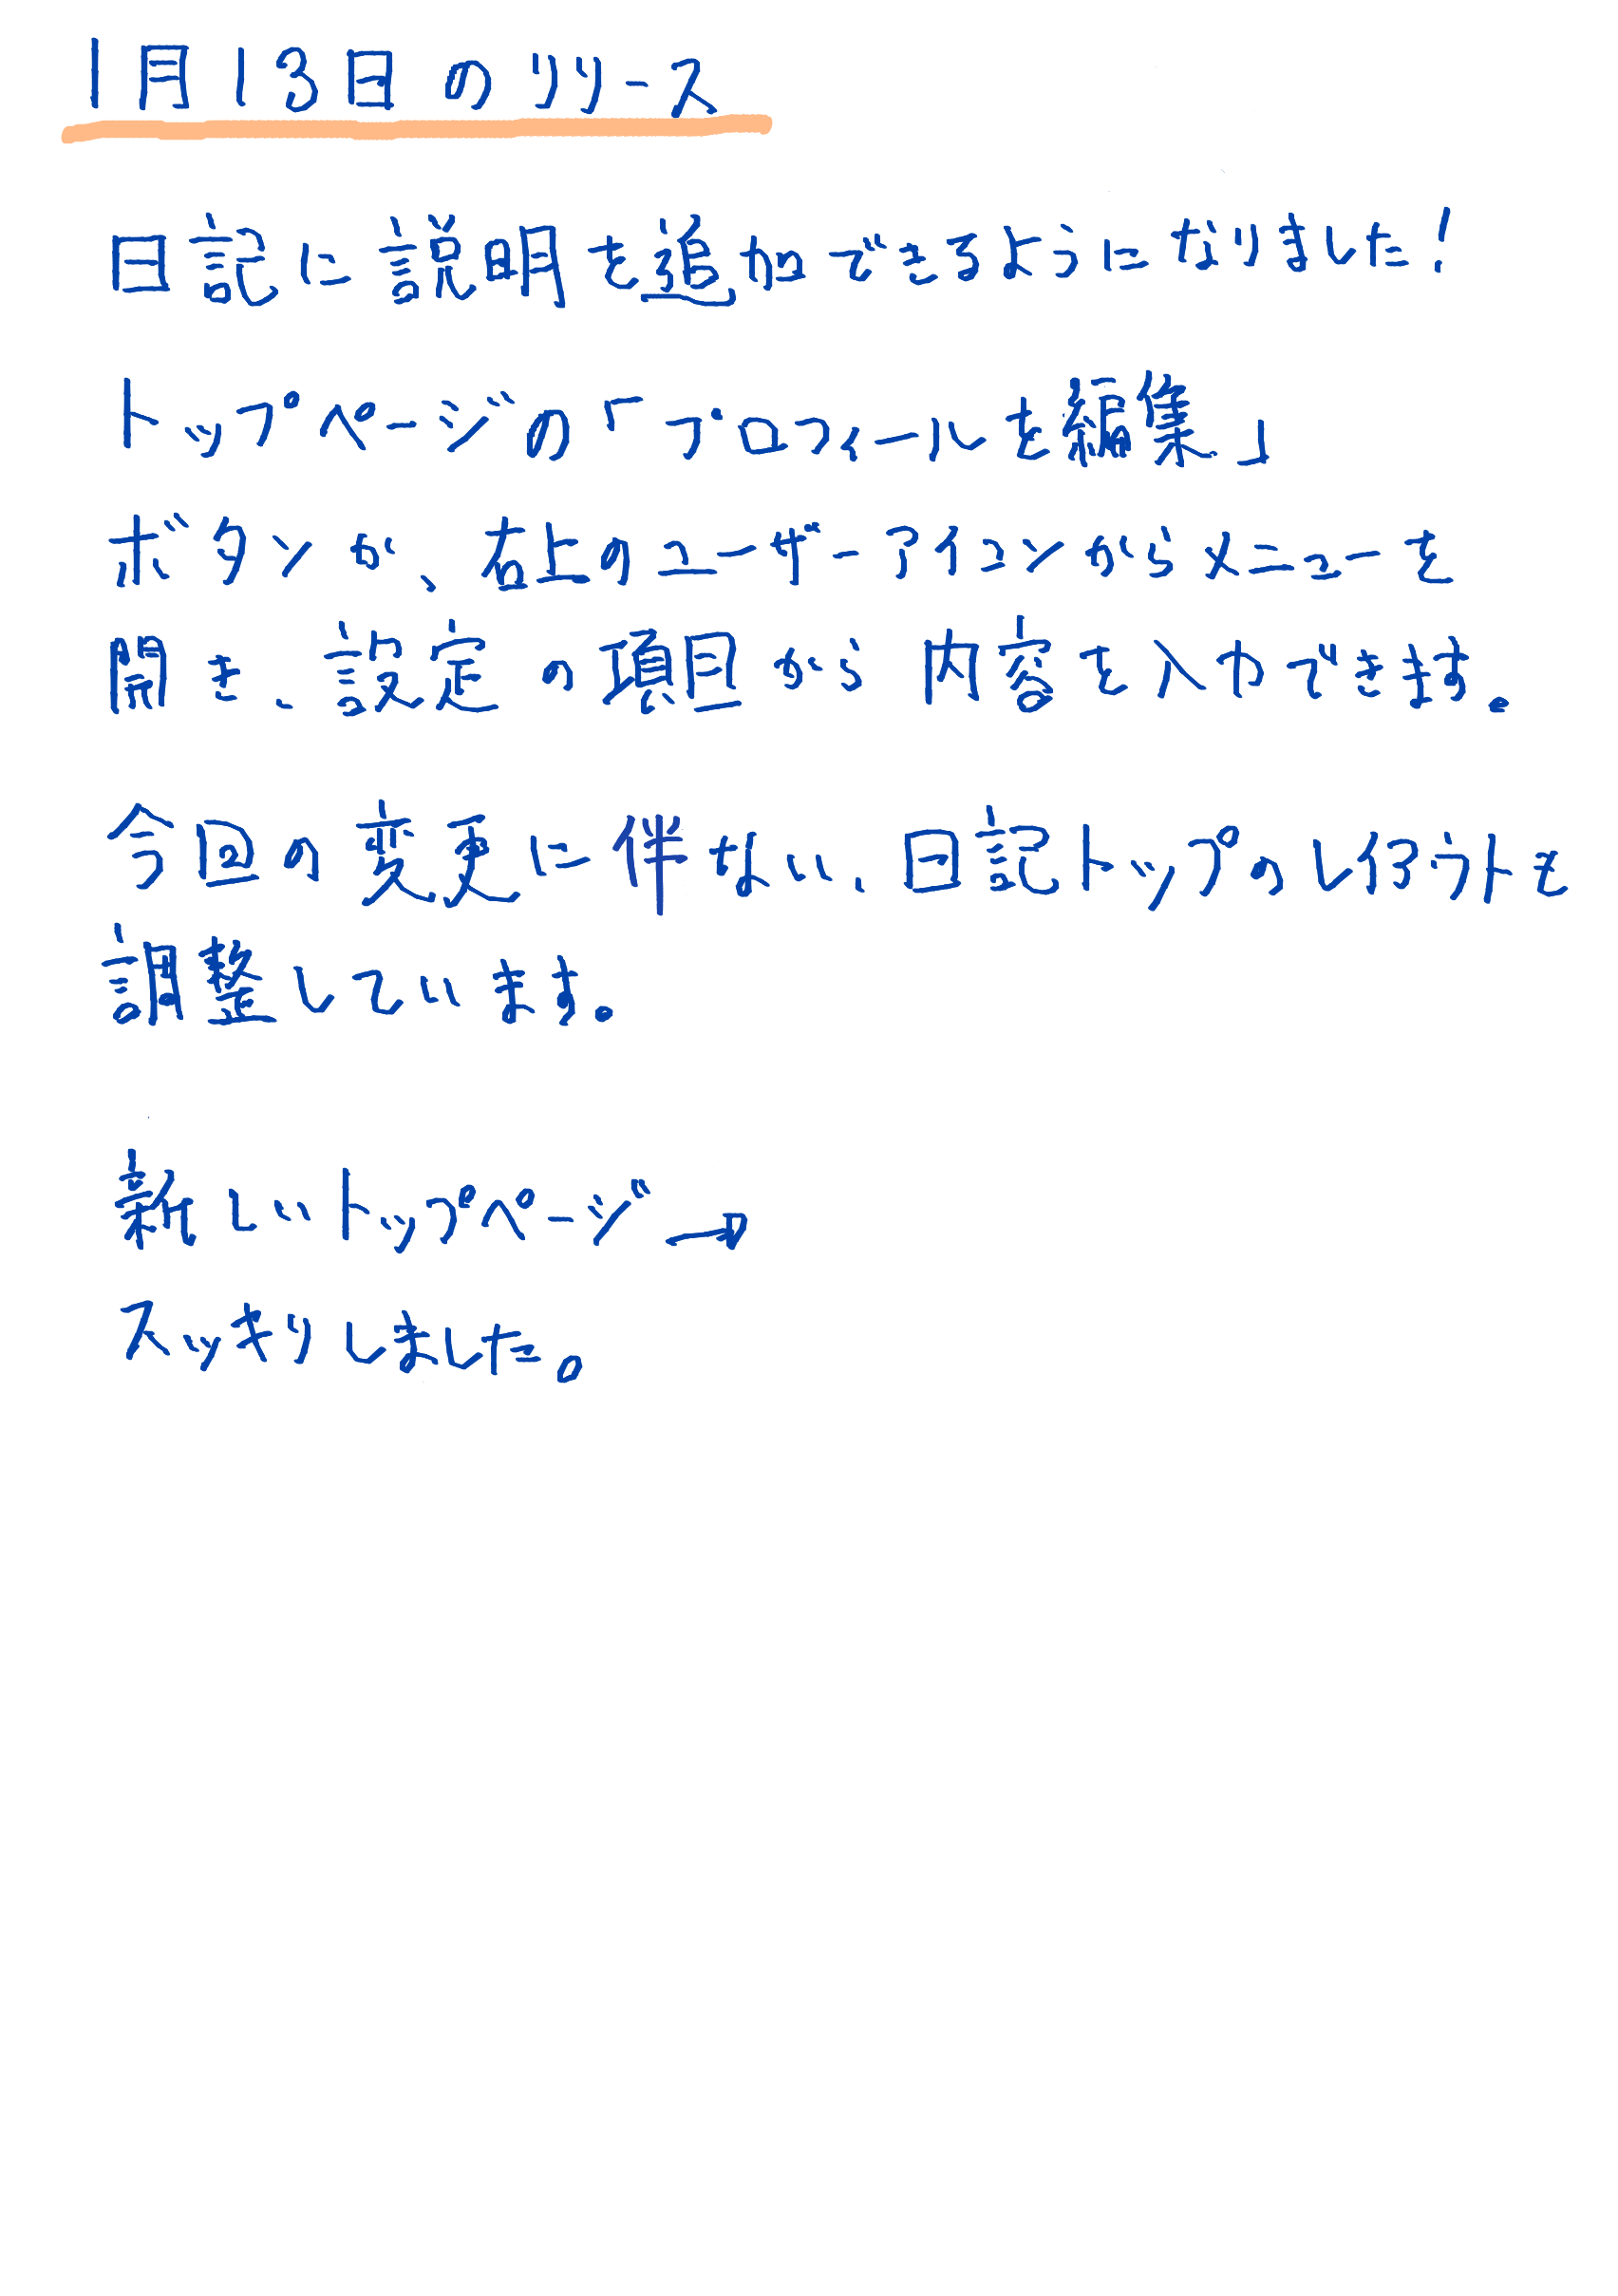 1月13日のリリース
日記に説明を追加できるようになりました!
トップページの「プロフィールを編集」
ボタンか、右上のユーザーアイコンからメニューを
開き、設定の項目から内容を入力できます。
今回の変更に伴ない、日記トップのレイアウトも
調整しています。
新しいトップページ→
スッキリしました。